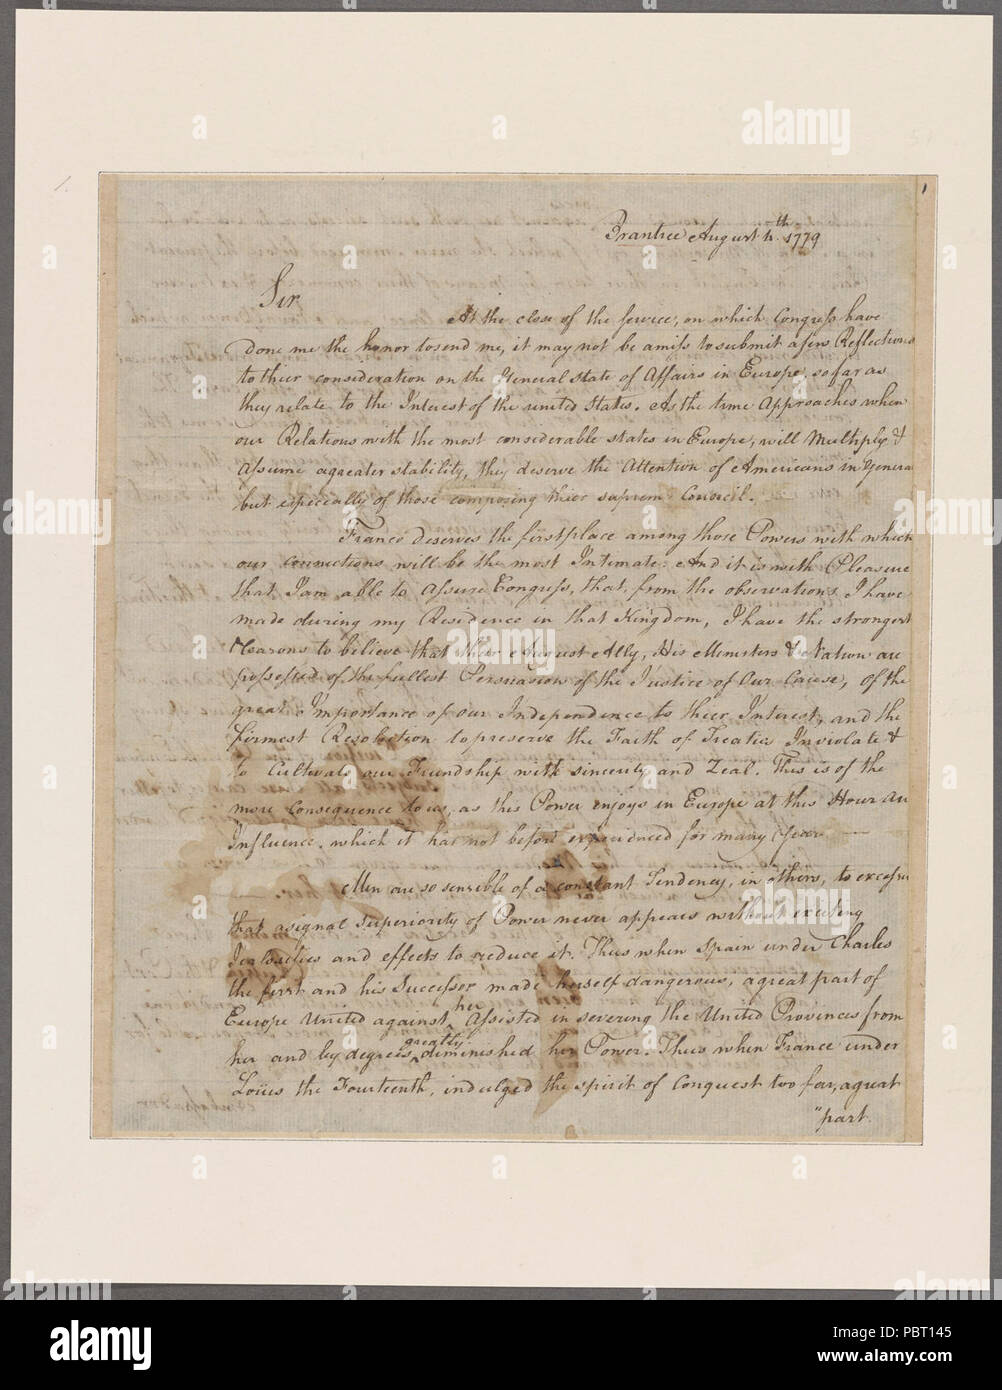 1.
1
Brantree August 4th 1779
Sir
At the close of the service, on which Congress have
done me the honor to send me, it may not be amiss to submit a few Reflections
to thier consideration on the General state of Affairs in Europe, so far as
they relate to the Interest of the united States. As the time Approaches when
our Relations with the most considerable states in Europe, will Multiply &
Assume a greater stability, they deserve the Attention of Americans in General
but especially of those composing thier suprem Council.
France deserves the first place among those Powers with which
our connections will be the most Intimate: And it is with Pleasure
that I am able to Assure Congress, that, from the observations I have
made during my Residence in that Kingdom, I have the strongest
Rearons to believe that their August Ally, His Ministers & Nation are
possessed of the fullest Persuasion of the Justice of Our Cause, of the
great Importance of our Independence to thier Interest, and the
firmest Resolution to preserve the Faith of Treaties Inviolate &
to Cultivate our Friendship with sincerity and Zeal. This is of the
more Consequence to us, as this Power enjoys in Europe at this Hour an
Influence, which it has not before experienced for many Years
Men are so sensible of a constant Tendency, in others, to excesses
that a signal superiority of Power never appears without exciting
Jealousies and effects to reduce it. Thus when Spain under Charles
the first and his Successor made herself dangerous, a great part of
Europe United against her Assisted in severing the United Provinces from
her and by degrees greatly diminished her Power. Thus when France under
Loüis the Fourteenth, indulged the spirit of Conquest too far, a great
"part.
alamy
PBT145
www.alamy.com